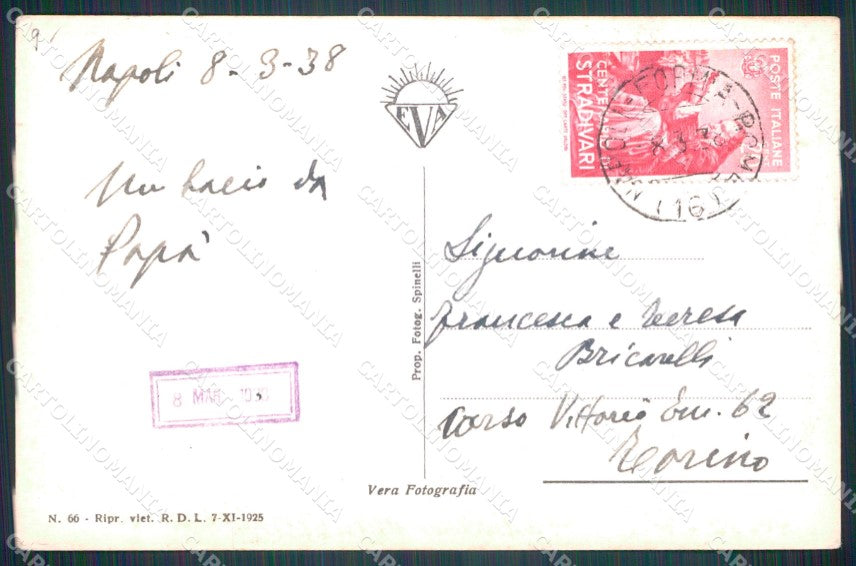 Napoli 8-3-38
Un bacio da
Papà
8 MAR 193
N. 66 - Ripr. viet. R. D. L. 7-XI-1925
EVA
Prop. Fotog. Spinelli
Vera Fotografia
POSTE ITALIANE
CENTENARI
STRADIVARI
(16)
Signorine
Francesca e Teresa
Bricarelli
Corso Vittorio Em. 62
Torino
CARTOLINOMANIA